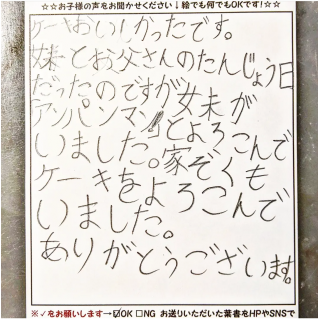 ☆☆お子様の声をお聞かせください↓絵でも何でもOKです!☆☆
ケーキおいしかったです。
妹とお父さんのたんじょう日
だったのですが妹が
「アンパンマン!!」とよろこんで
いました。家ぞくも
ケーキをよろこんで
いました。
ありがとうございます。
※✓をお願いします→☑OK □NG お送りいただいた葉書をHPやSNSで